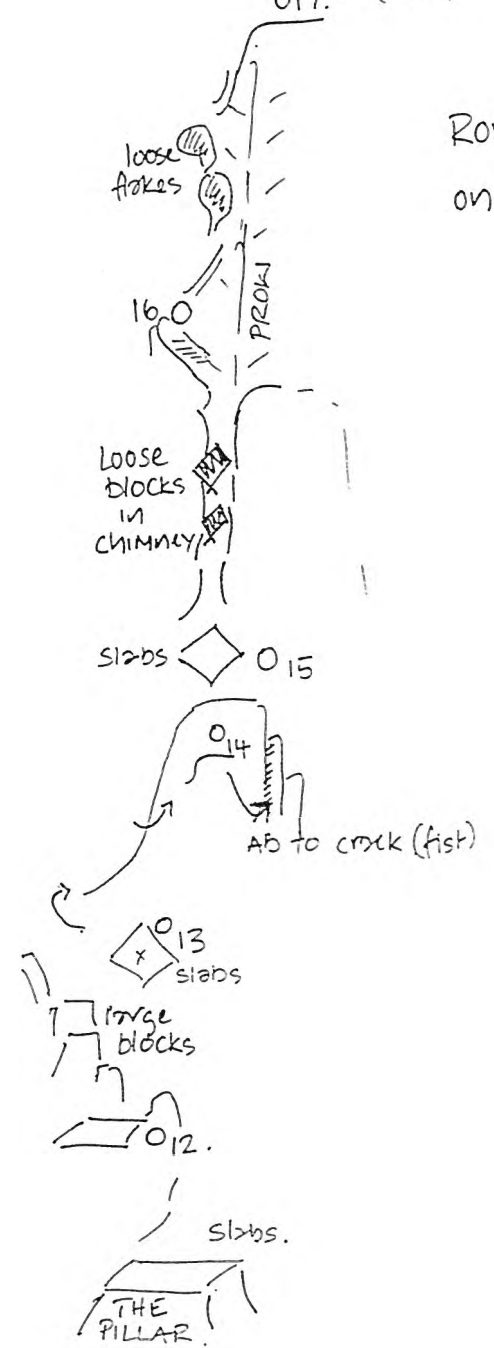 OFF.
loose
flakes
on
16
PROW
Loose
blocks
in
CHIMNEY
slabs
15
14
AB to crack (fist)
13
slabs
large
blocks
12.
slabs.
THE
PILLAR.